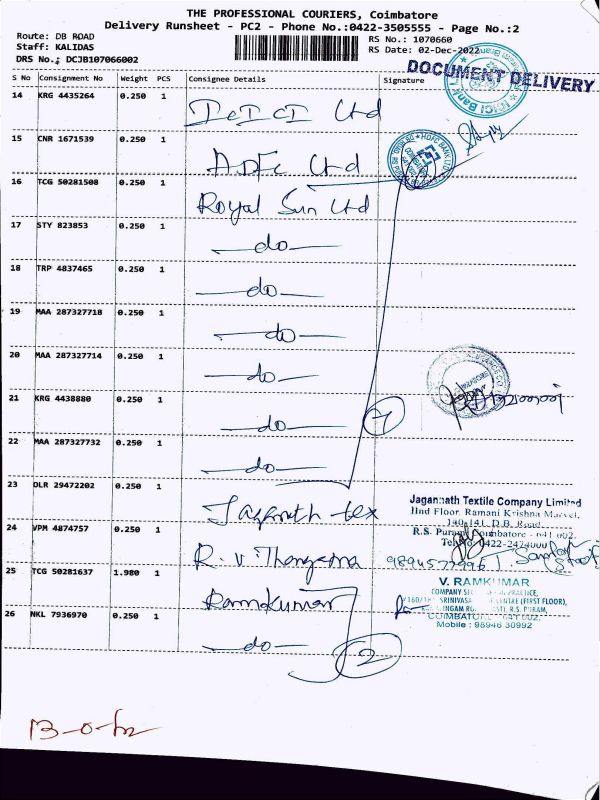 THE PROFESSIONAL COURIERS, Coimbatore
Delivery Runsheet - PC2 - Phone No.:0422-3505555 - Page No.:2
Route: DB ROAD
RS No.: 1070660
Staff: KALIDAS
RS Date: 02-Dec-2022
DRS No.: DCJB107066002
DOCUMENT DELIVERY
S No Consignment No Weight PCS Consignee Details Signature
14 KRG 4435264 0.250 1 ICICI Ltd
15 CNR 1671539 0.250 1 HDFC Ltd
HDFC BANK LTD
16 TCG 50281508 0.250 1 Royal Sun Ltd
17 STY 823853 0.250 1 —do—
18 TRP 4837465 0.250 1 —do—
19 MAA 287327718 0.250 1 —do—
20 MAA 287327714 0.250 1 —do—
21 KRG 4438880 0.250 1 —do— 7
22 MAA 287327732 0.250 1 —do—
23 DLR 29472202 0.250 1 Jaganath tex
Jagannath Textile Company Limited
IInd Floor, Ramani Krishna
140-141, D.B. Road,
R.S. Puram, Coimbatore - 641 002.
0422-2424000
24 VPM 4874757 0.250 1 R. V
25 TCG 50281637 1.980 1 Ramkumar
V. RAMKUMAR
COMPANY PRACTICE,
CENTRE (FIRST FLOOR),
R.S. PURAM,
COIMBATORE - 641 002.
Mobile : 98946 30992
26 NKL 7936970 0.250 1 —do— 2